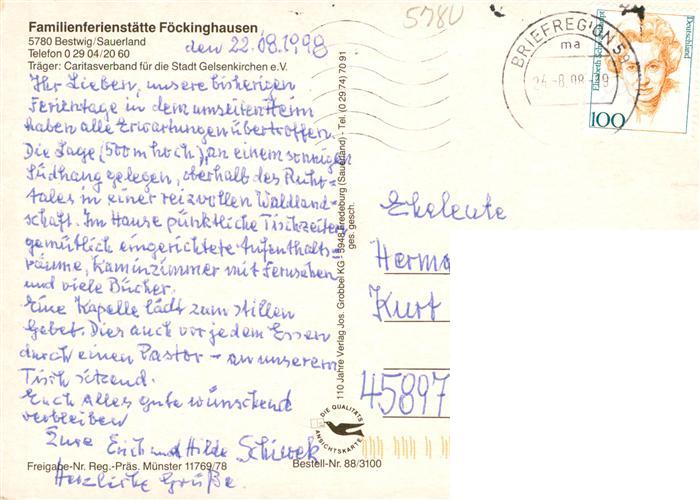 Familienferienstätte Föckinghausen
5780 Bestwig/Sauerland
Telefon 0 29 04/20 60
Träger: Caritasverband für die Stadt Gelsenkirchen e.V.
den 22.08.1998
Ihr Lieben, unsere bisherigen
Ferientage in dem umseiten Heim
haben alle Erwartungen übertroffen.
Die Lage, (500m hoch), an einem sonnigen
Südhang gelegen, oberhalb des Ruhr-
tales in einer reizvollen Waldland-
schaft. Im Hause pünktliche Tischzeiten
gemütlich eingerichtete Aufenthalts-
räume, Kaminzimmer mit Fernsehen
und viele Bücher.
Eine Kapelle lädt zum stillen
Gebet. Dies auch vor jedem Essen
durch einen Pastor - an unserem
Tisch sitzend.
Euch Alles gute wünschend
verbleiben
Eure Erich und Hilde Schiwek
Herzliche Grüße.
Freigabe-Nr. Reg.-Präs. Münster 11769/78
Bestell-Nr. 88/3100
110 Jahre Verlag Jos. Grobbel KG · 5948 Fredeburg (Sauerland) - Tel. (0 29 74) 70 91
ges. gesch.
DIE QUALITÄTS
ANSICHTSKARTE
5780
BRIEFREGION 59
ma
24.-8.98.-19
Deutschland
100
Eheleute
Herma
Kurt
45897